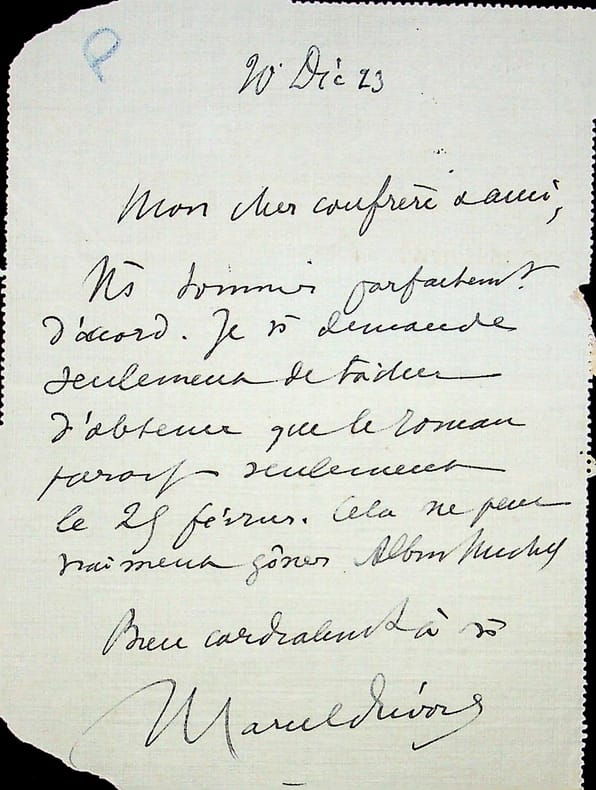 20 Déc 23
Mon cher confrère & ami,
Ns sommes parfaitement
d'accord. Je vs demande
seulement de tâcher
d'obtenir que le roman
paraisse seulement
le 25 février. Cela ne peut
vraiment gêner Albin Michel
Bien cordialement à vs
Marcel Prévost